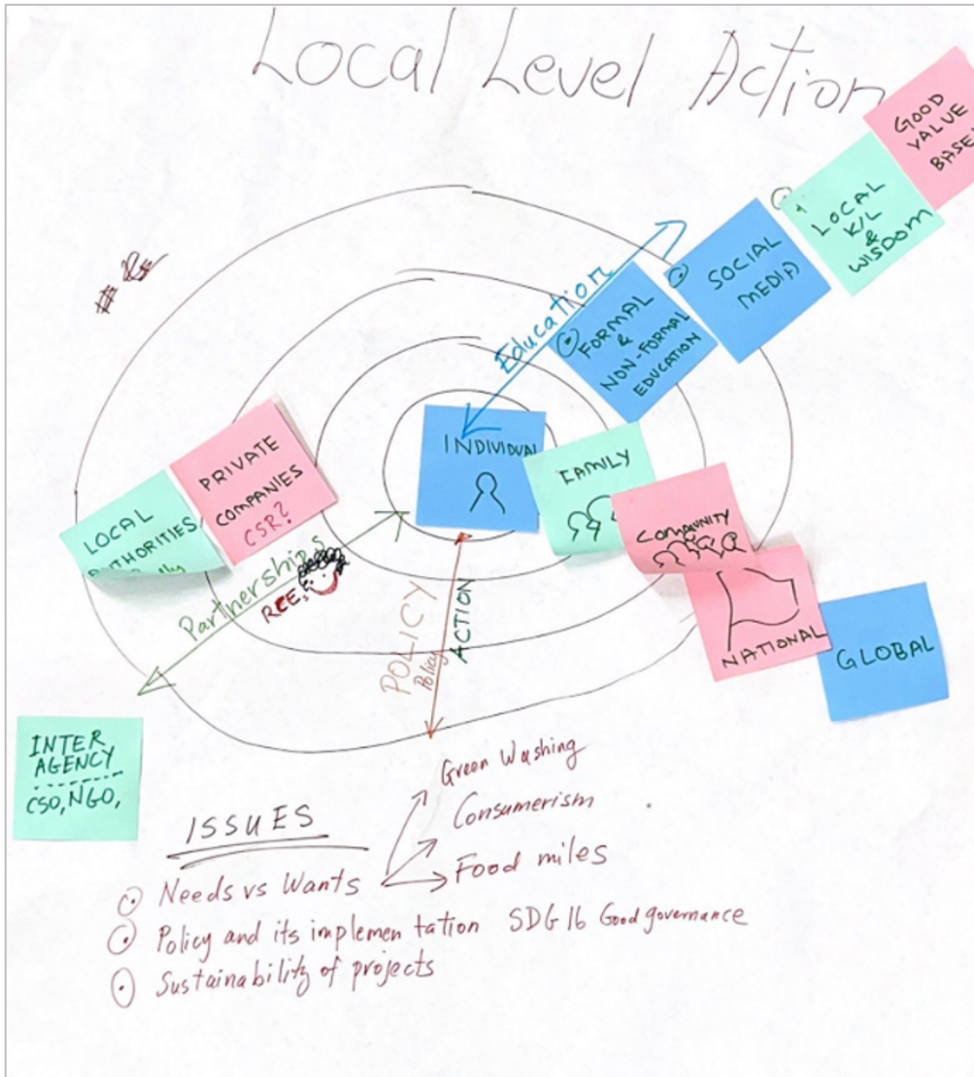 Local Level Action
GOOD
VALUE
BASE
LOCAL
K/L
&
WISDOM
SOCIAL
MEDIA
FORMAL
&
NON-FORMAL
EDUCATION
Education
INDIVIDUAL
FAMILY
COMMUNITY
NATIONAL
GLOBAL
PRIVATE
COMPANIES
CSR?
LOCAL
AUTHORITIES,
Partnerships
RCE
POLICY
Policy
ACTION
INTER
AGENCY
CSO, NGO,
ISSUES
Needs vs Wants
Green Washing
Consumerism
Food miles
Policy and its implemen tation SDG 16 Good governance
Sustainability of projects